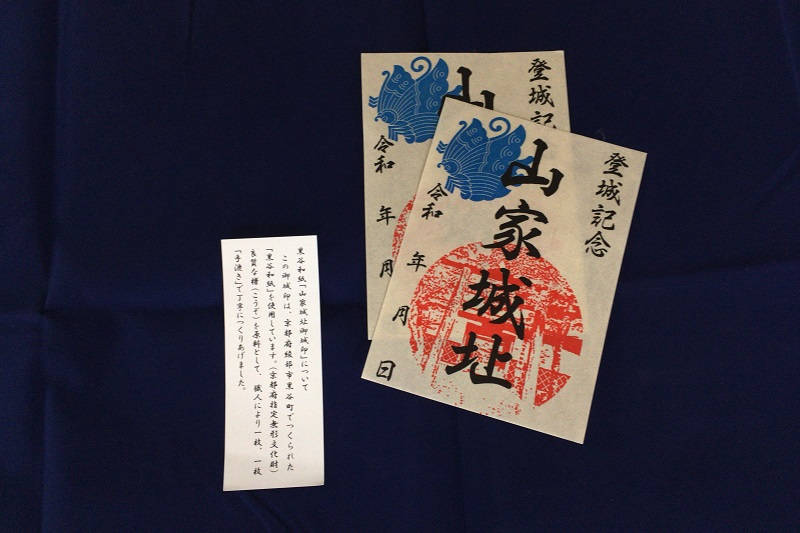 登城記念
山家城址
令和
年
月
日
登城記
山
令和
年
月
黒谷和紙「山家城址御城印」について
この御城印は、京都府綾部市黒谷町でつくられた
「黒谷和紙」を使用しています。(京都府指定無形文化財)
良質な楮(こうぞ)を原料として、職人により一枚、一枚
「手漉き」で丁寧につくりあげました。